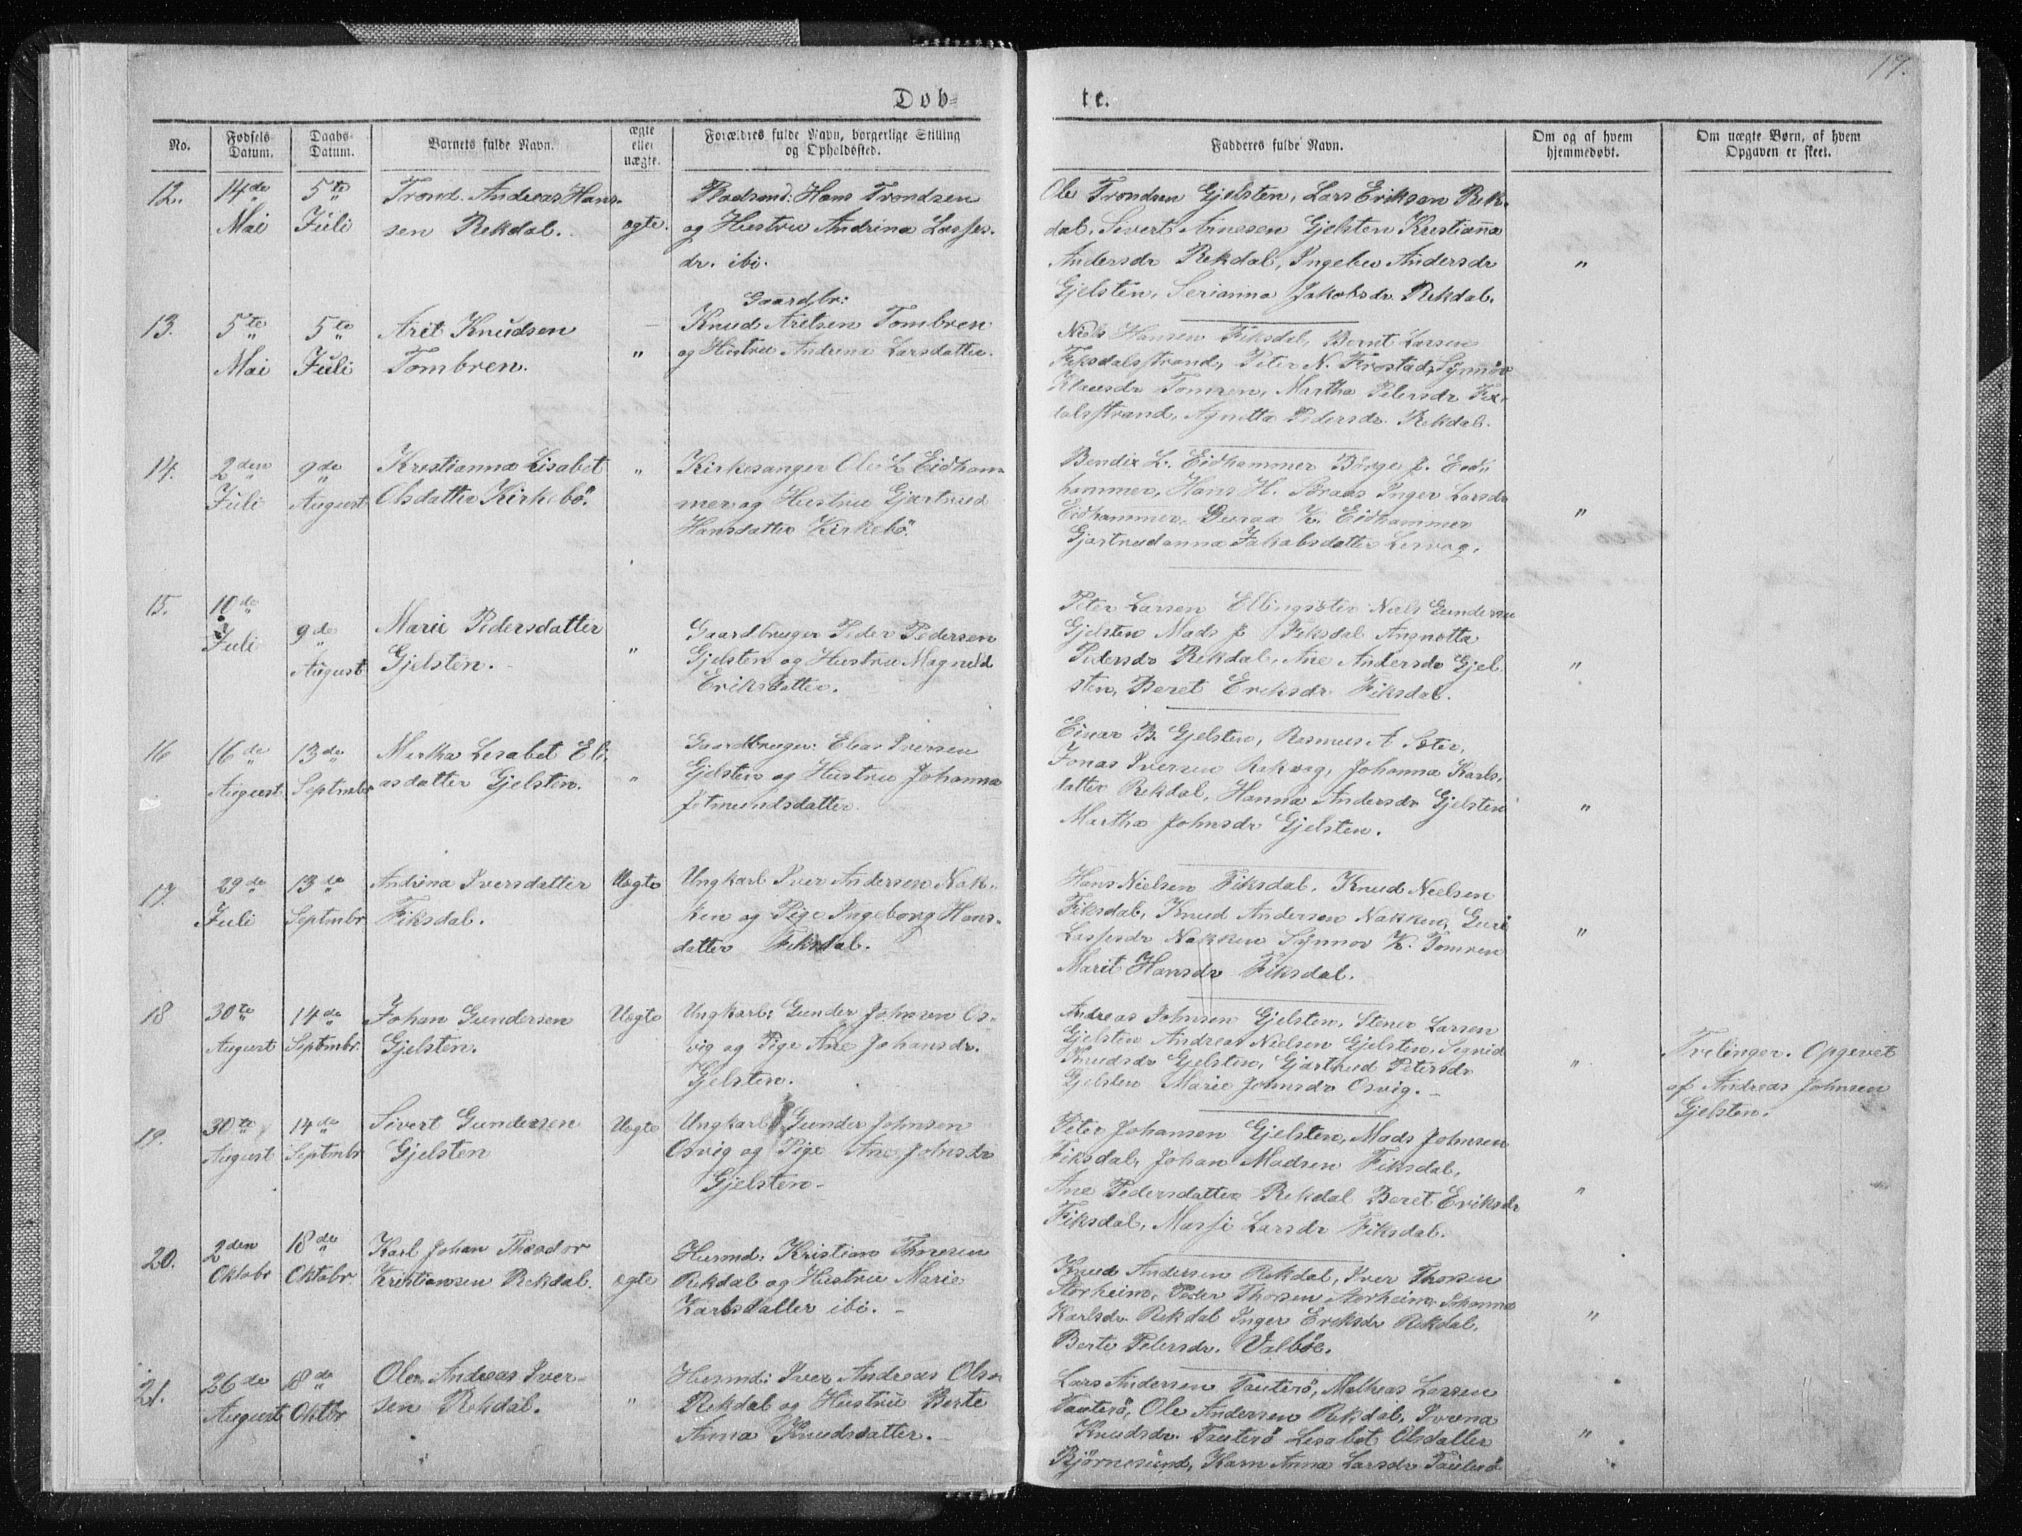 17.
Døb-
te.
No.
Fødsels-
Datum.
Daabs-
Datum.
Barnets fulde Navn.
ægte
eller
uægte.
Forældres fulde Navn, borgerlige Stilling
og Opholdssted.
Fadderes fulde Navn.
Om og af hvem
hjemmedøbt.
Om uægte Børn, af hvem
Opgaven er skeet.
12.
14de
Mai
5te
Juli
Trond Andreas Han-
sen Rekdal.
ægte.
Hans Trondsen
og Hustru Andrina Lasses-
dr. ibi.
Ole Trondsen Gjelsten, Lars Eriksen Rek-
dal, Sivert Arnesen Gjelsten Kristianna
Andersdr Rekdal, Ingebor Andersdr
Gjelsten, Serianna Jakobsdr Rekdal.
"
13.
5te
Mai
5te
Juli
Arit Knudsen
Tombren.
"
Gaardbr:
Knud Aritsen Tombren
og Hustru Andrina Larsdatter.
Niels Hansen Fiksdal, Bernt Larsen
Fiksdalsstrand, Peter N. Frostad, Synnöv
Klausdr Tomren, Martha Petersdr Fix-
dalsstrand, Agnetta Pedersdr Rekdal.
14.
2den
Juli
9de
August
Krestianna Lisabet
Olsdatter Kirkebö.
"
Kirkesanger Ole L. Eidham-
mer og Hustru Gjertrud
Hansdatter Kirkebö.
Bendix L. Eidhammer Börge J. Eid-
hammer, Hans H. Inger Larsdr
Eidhammer, K. Eidhammer
Gjertrudanna Jakobsdatter
"
15.
10de
Juli
9de
August
Marie Pedersdatter
Gjelsten.
"
Gaardbruger Peder Pedersen
Gjelsten og Hustru Magnild
Eriksdatter.
Peter Larsen Niels Gundersen
Gjelsten Mads J. Fiksdal Angnetta
Pedersdr Rekdal, Ane Andersdr Gjel-
sten, Beret Eriksdr Fiksdal.
"
16
16de
August
13de
Septmbr
Martha Lesabet Eli-
asdatter Gjelsten.
"
Gaardbruger: Elias Iversen
Gjelsten og Hustru Johanna
Jetmundsdatter
Einar B. Gjelsten, Rasmus A
Jonas Iversen Rekvag, Johanna Karls-
datter Rekdal, Hanna Andersdr Gjelsten
Martha Johnsdr Gjelsten.
"
17.
29de
Juli
13de
Septmbr
Andrina Iversdatter
Fiksdal.
Uægte
Ungkarl Iver Andersen Nak-
ken og Pige Ingeborg Hans-
datter Fiksdal.
Hans Nielsen Fiksdal, Knud Nielsen
Fiksdal, Knud Andersen Nakken, Guri
Lassesdr Nakken Synnov K. Tomren
Marit Hansdr Fiksdal.
"
18
30te
August
14de
Septmbr.
Johan Gundersen
Gjelsten.
Uægte
Ungkarl: Gunder Johnsen Os-
vig og Pige Ane Johansdr.
Gjelsten.
Andreas Johnsen Gjelsten, Stener Larsen
Gjelsten Andreas Nielsen Gjelsten, Segnid
Knudsdr Gjelsten, Gjertrud Petersdr
Gjelsten Marie Johnsdr Osvig.
"
Tvelinger. Opgevet
af Andreas Johnsen
Gjelsten.
19.
30te
August
14de
Septmbr
Sivert Gundersen
Gjelsten
Uægte
Ungkarl Gunder Johnsen
Osvig og Pige Ane Johnsdr
Gjelsten
Peter Johansen Gjelsten, Mads Johnsen
Fiksdal, Johan Madsen Fiksdal,
Ane Pedersdatter Rekdal Beret Eriksdr
Fiksdal, Massi Larsdr Fiksdal.
"
20.
2den
Oktobr
18de
Oktobr.
Karl Johan Theodor
Kristiansen Rekdal.
ægte
Husmd. Kristian Thoresen
Rekdal og Hustru Marie
Karlsdatter ibi.
Knud Andersen Rekdal, Iver Thorsen
Storheim, Peder Thorsen Storheim Johanna
Karlsdr. Rekdal Inger Eriksdr Rekdal,
Berte Petersdr. Valböe.
"
21.
26de
August
18de
Oktbr
Ole Andreas Iver-
sen Rekdal.
"
Husmd: Iver Andreas Olsen
Rekdal og Hustru Berte
Anna Knudsdatter.
Lars Andersen Tauterö, Mathias Larsen
Tauterö, Ole Andersen Rekdal, Ivrena
Knudsdr. Tauterö Lesabet Olsdatter
Björnesund, Karn Anna Larsdr Tauterö
"